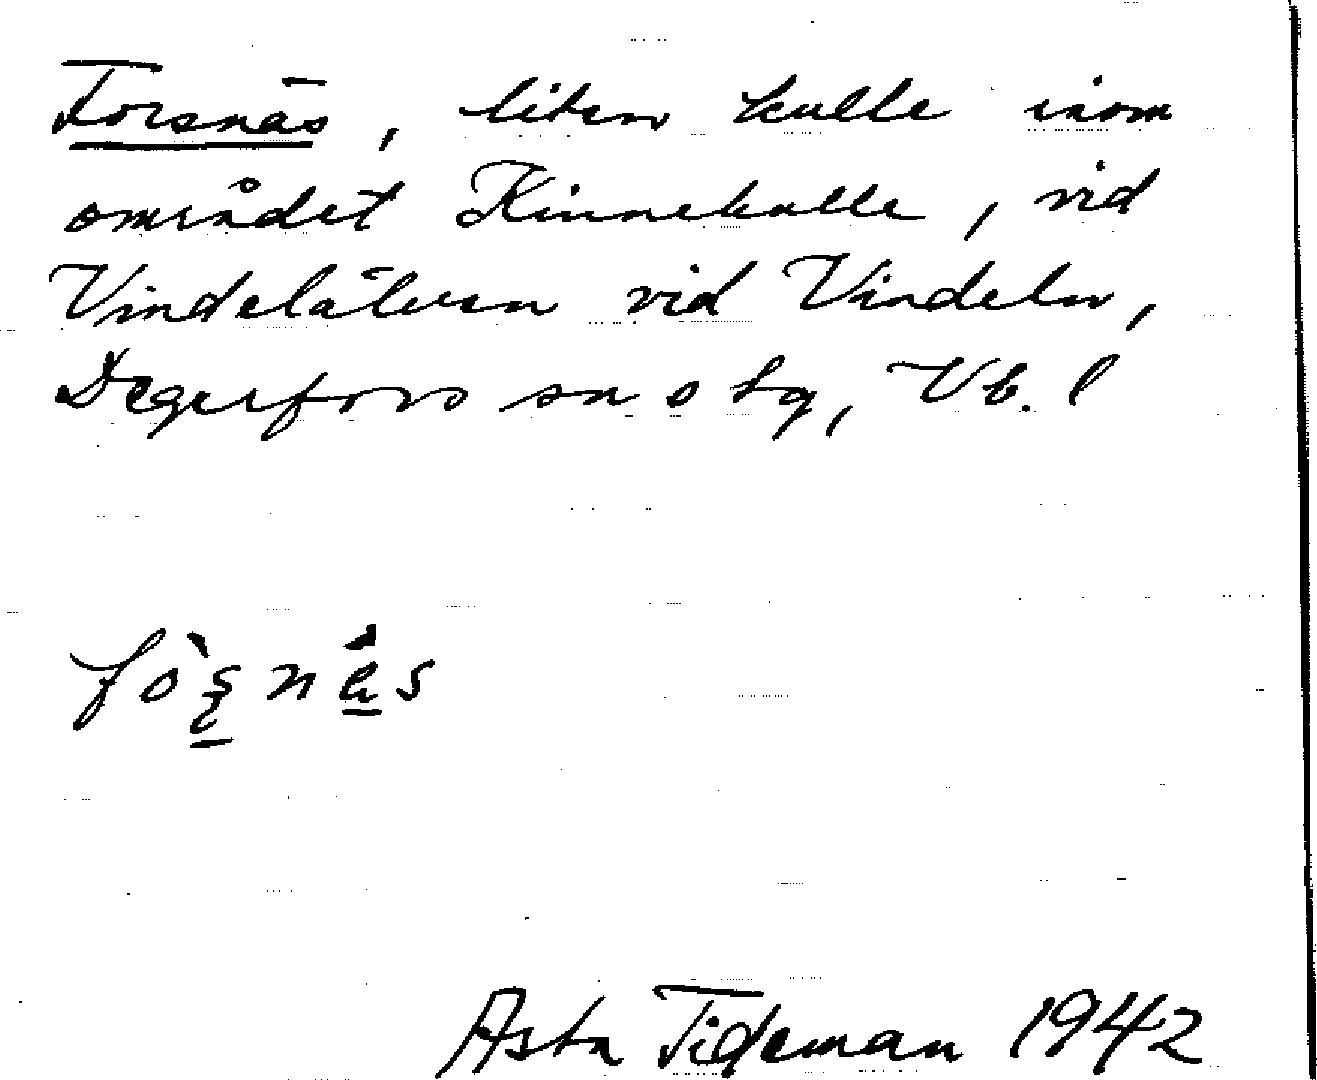 Forsnäs, liten kulle inom
området Kinnekulle, vid
Vindelälven vid Vindeln,
Degerfors sn o tg, Vb. l
Asta Tideman 1942